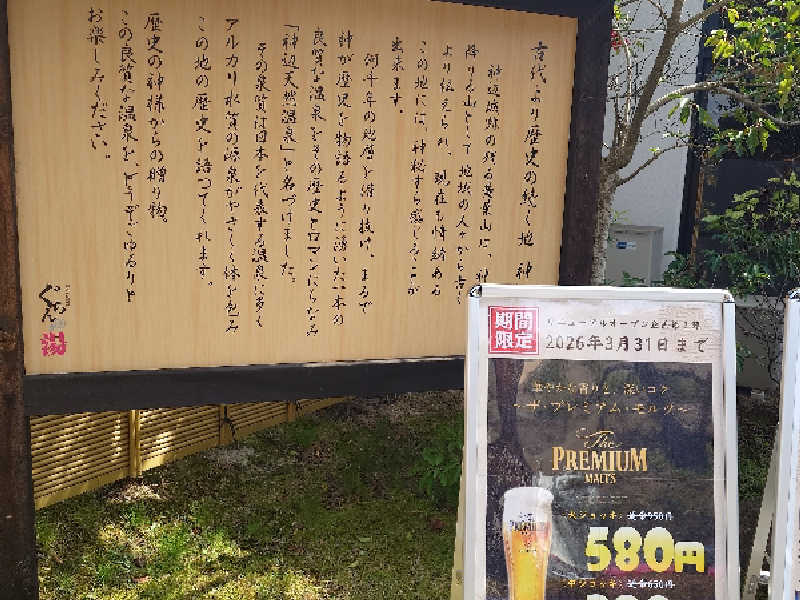 古代より歴史の続く地 神
神辺城跡の残る黄葉山は、神
降りる山として、地域の人々から古く
より伝えられ、現在も情緒ある
この地には、神秘すら感じることが
出来ます。
何千年の地層を縫り抜け、まるで
神が歴史を物語るように湧いた一本の
良質な温泉をその歴史とロマンにちなみ
「神辺天然温泉」と名づけました。
その泉質は日本を代表する温泉に多く
アルカリ水質の源泉がやさしく体を包み
この地の歴史を語ってくれます。
歴史の神様からの贈り物。
この良質な温泉を、どうぞごゆるりと
お楽しみください。
ぐらんの湯
期間
限定
リニューアルオープン企画第2弾
2026年3月31日まで
華やかな香りと、深いコク
～ザ・プレミアム・モルツ～
The
PREMIUM
MALT'S
580円